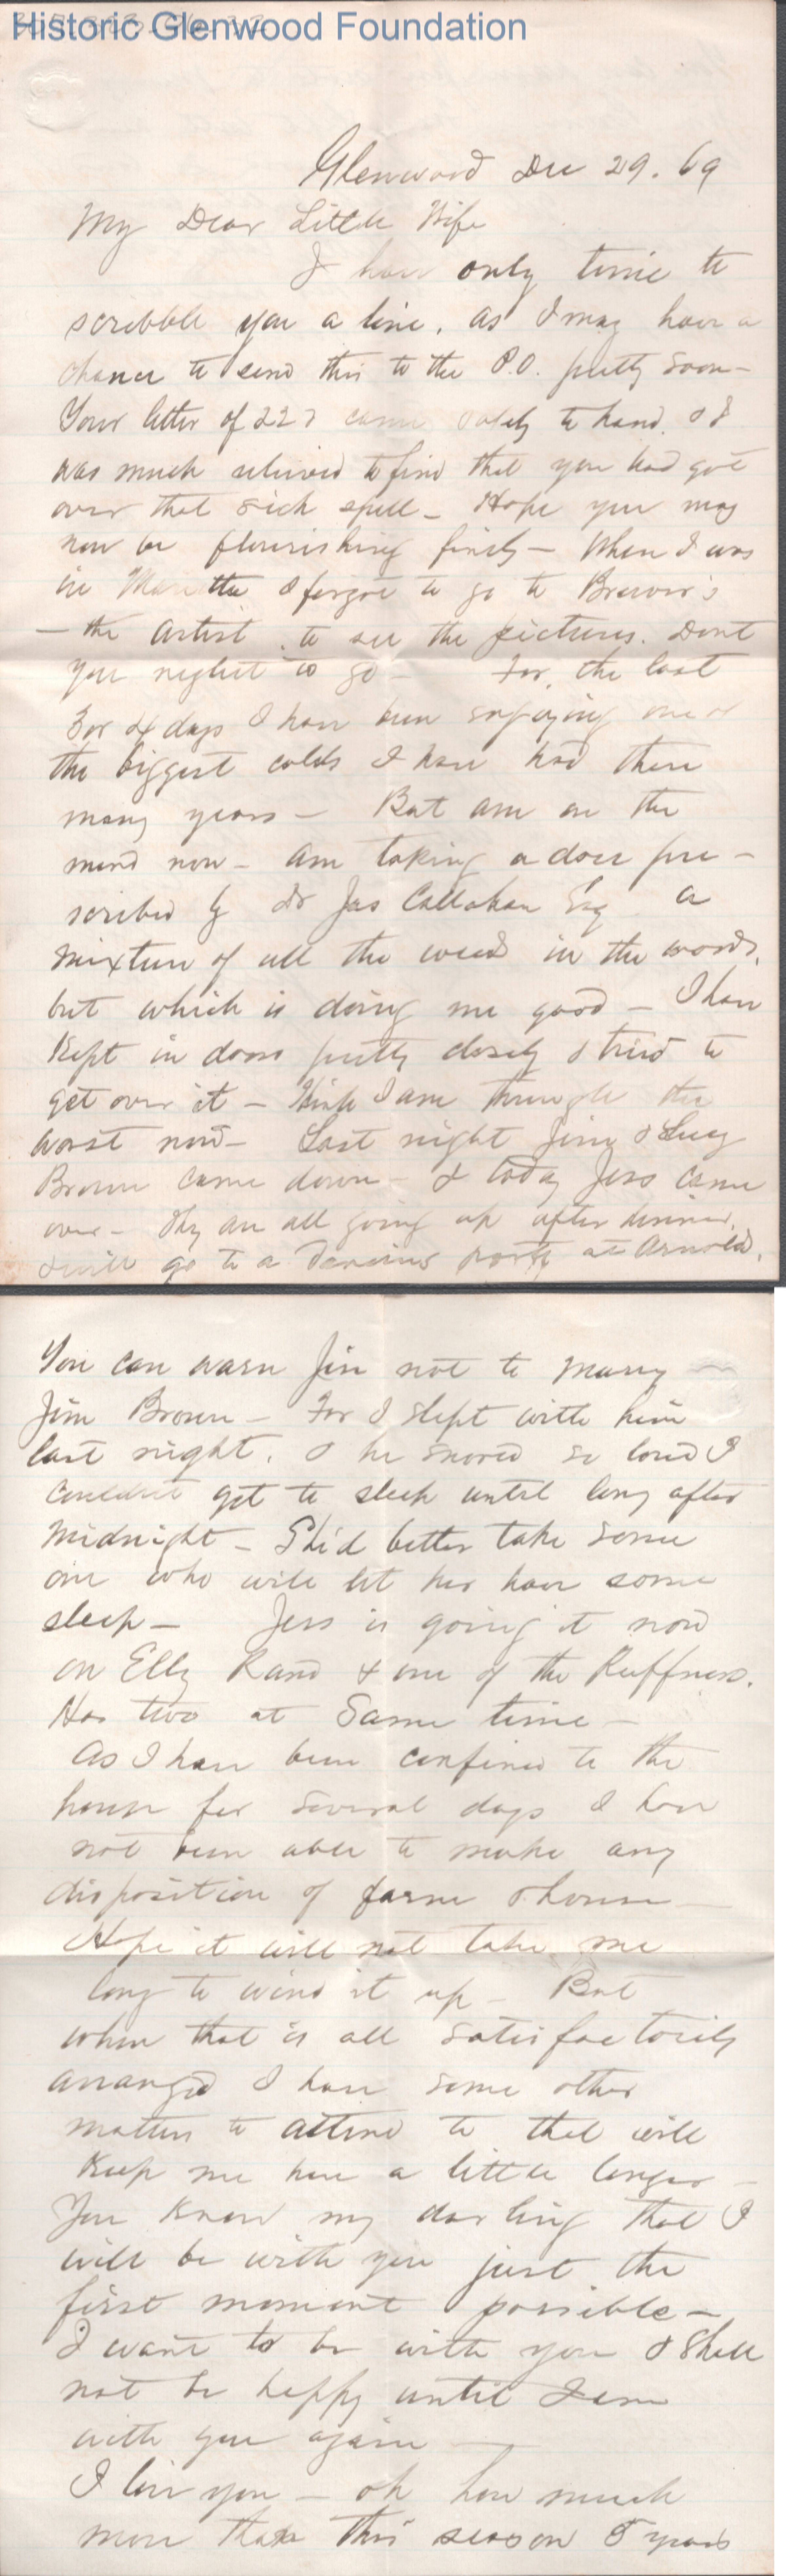 Historic Glenwood Foundation
Glenwood Dec 29. 69
My Dear Little Wife
I have only time to
scribble you a line, as I may have a
chance to send this to the P.O. pretty soon –
Your letter of 22d came safely to hand, & I
was much relieved to find that you had got
over that sick spell – Hope you may
now be flourishing finely – When I was
in Marietta I forgot to go to Brewer's
– the Artist, to see the pictures. Dont
you neglect to go – For the last
3 or 4 days I have been enjoying one of
the biggest colds I have had these
many years – But am on the
mend now – am taking a dose pre –
scribed by Dr Jas Callahan Esq a
mixture of all the weeds in the woods,
but which is doing me good – I have
kept in doors pretty closely & tried to
get over it – Think I am through the
worst now – Last night Jim & Lucy
Brown came down – & today Jess came
over – They are all going up after dinner,
& will go to a Dancing party at Arnolds,
You can warn Jin not to marry
Jim Brown – For I slept with him
last night, & he snored so loud I
couldnt get to sleep until long after
midnight – She'd better take some
one who will let her have some
sleep – Jess is going it now
on Elly Rand & one of the Ruffners.
Has two at same time –
As I have been confined to the
house for several days I have
not been able to make any
disposition of farm & house –
Hope it will not take me
long to wind it up – But
when that is all satisfactorily
arranged I have some other
matters to attend to that will
keep me here a little longer –
You know my darling that I
will be with you just the
first moment possible –
I want to be with you & shall
not be happy until I am
with you again –
I love you – oh how much
more than this season 5 years